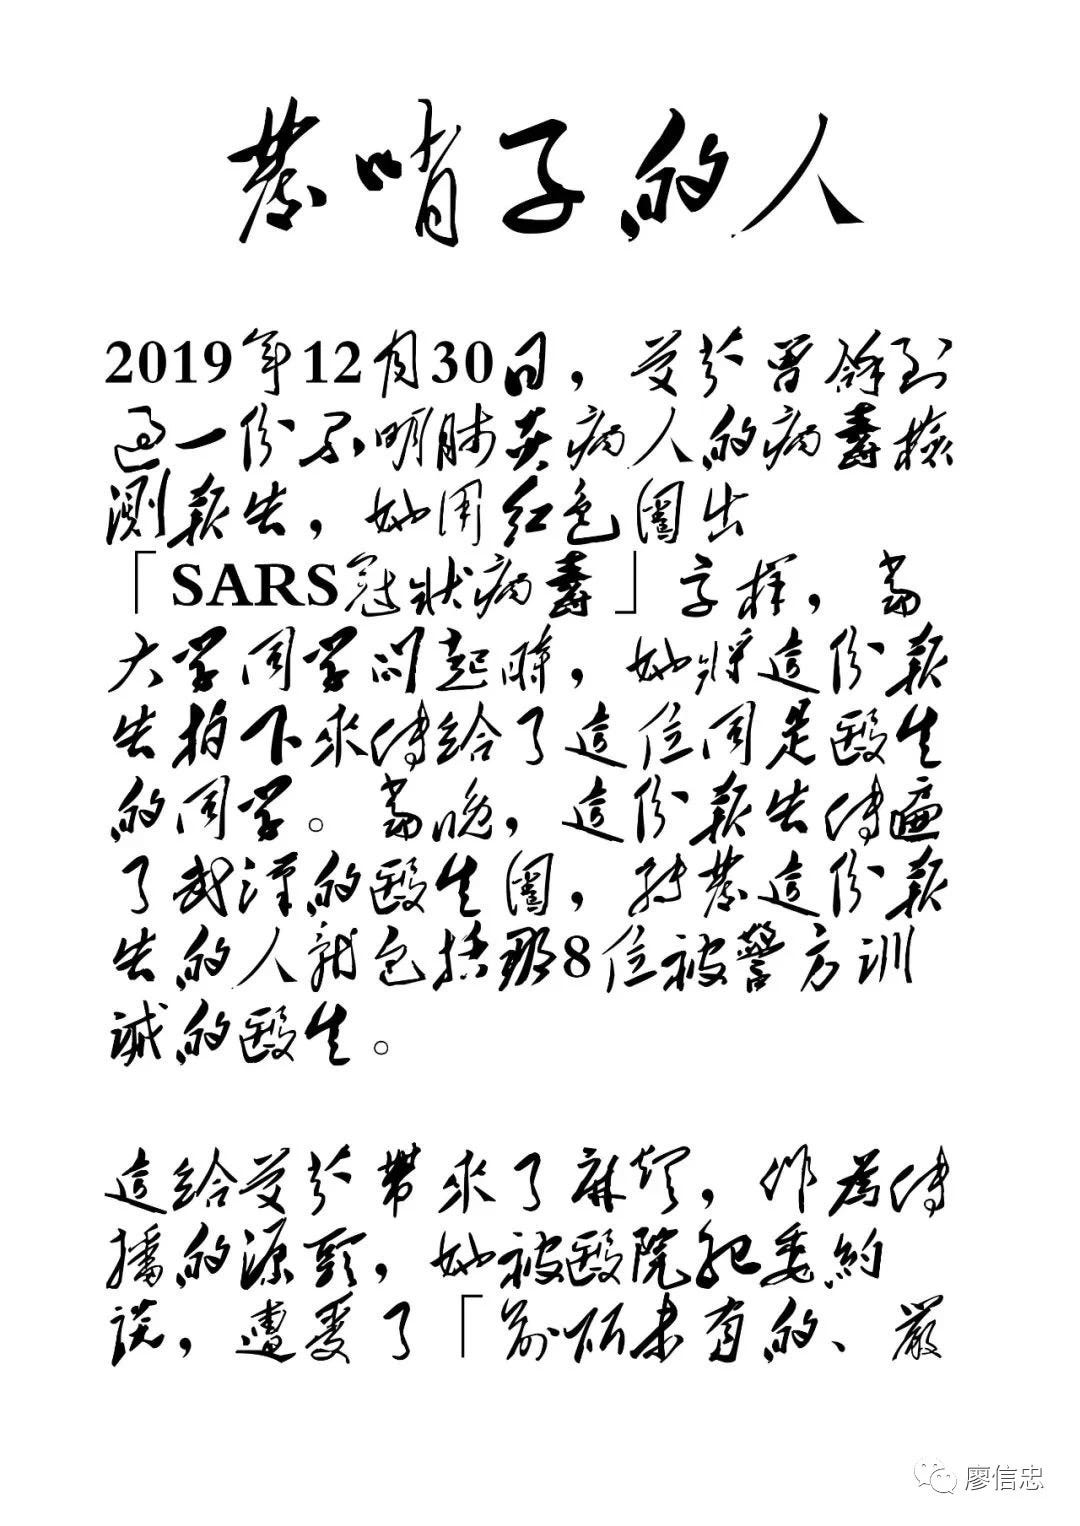 發哨子的人
2019年12月30日，艾芬曾餘到
過一份不明肺炎病人的病毒檢
測報告，她用紅色圈出
「SARS冠狀病毒」字樣，當
大學同學問起時，她將這份報
告拍下來傳給了這位同是醫生
的同學。當晚，這份報告傳遍
了武漢的醫生圈，轉發這份報
告的人就包括那8位被警方訓
誡的醫生。
這給艾芬帶來了麻煩，作為傳
播的源頭，她被醫院紀委約
談，遭受了「前所未有的、嚴
廖信忠